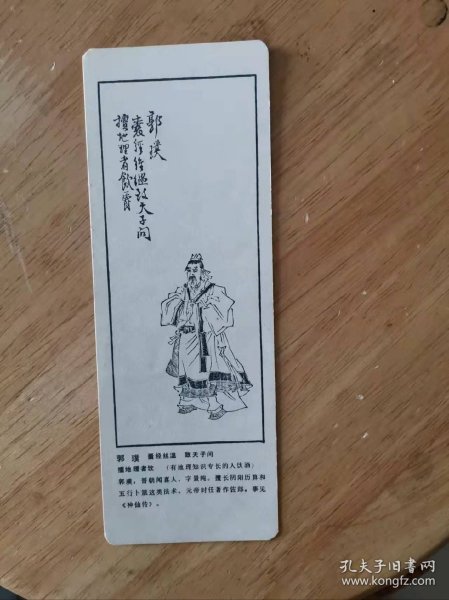 郭璞
天子问
地理者飲爵
郭 璞 经丝温 天子问
地理者饮 （有地理知识专长的人饮酒）
郭璞，晋朝闻喜人，字景纯，擅长阴阳历算和
五行卜筮这类法术，元帝时任著作佐郎。事见
《神仙传》。
孔夫子旧书网
www.kongfz.com